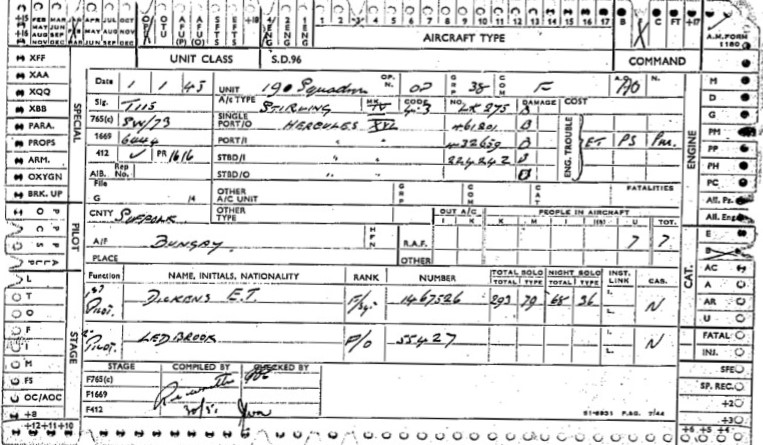 +15 FEB MAR APR JUL OCT
MAY JUN
+16 AUG SEP
NOV DEC
OTU
AFU (P)
AFU (O)
SFTS
EFTS
+18
4 ENG
2 ENG
1 ENG
1 2 3 4 5 6 7 8 9 10 11 12 13 14 15 16 17
AIRCRAFT TYPE
B C FT +17
A.M. FORM 1180
UNIT CLASS S.D.96 COMMAND
XFF
XAA
XQQ
XBB
PARA.
PROPS
ARM.
OXYGN
BRK. UP
SPECIAL
Date 1 1 45 UNIT 190 Squadron OP. N. OP GRP 38 COM F A.D. N.
Sig. T115 A/c TYPE STIRLING MK IV CODE NO. LK 275 DAMAGE COST
765(c) SW/73 SINGLE PORT/O HERCULES XVI 461201
1669 6444 PORT/I " " 432659 ENG. TROUBLE ET PS PM.
412 ✓ PR 1616 STBD/I " " 224242
A.I.B. Rep No. STBD/O " "
File G /4 OTHER A/C UNIT GRP COM CAT FATALITIES
CNTY SUFFOLK OTHER TYPE OUT A/C PEOPLE IN AIRCRAFT
I K K M I I(S) U TOT.
A/F BUNGAY HFN R.A.F. 7 7
PLACE OTHER
PILOT
Function NAME, INITIALS, NATIONALITY RANK NUMBER TOTAL SOLO NIGHT SOLO INST. LINK CAS.
TOTAL TYPE TOTAL TYPE
PILOT. DICKENS E.T. F/Sgt. 1467526 293 79 68 36 I. L. N
PILOT. LEDBROOK P/O 55427 I. L. N
STAGE
STAGE COMPILED BY CHECKED BY
F765(c)
F1669
F412
51-6931 P.B.G. 7/44
L
T
O
F
T
M
FS
OC/AOC
+8
+12 +11 +10
ENGINE
M
D
G
PM
PP
PH
PC
All. Ps.
All. Eng.
CAT.
E
B
AC
A
AR
U
FATAL
INJ.
SFE
SP. REC.
+2
+3
+6 +5 +4